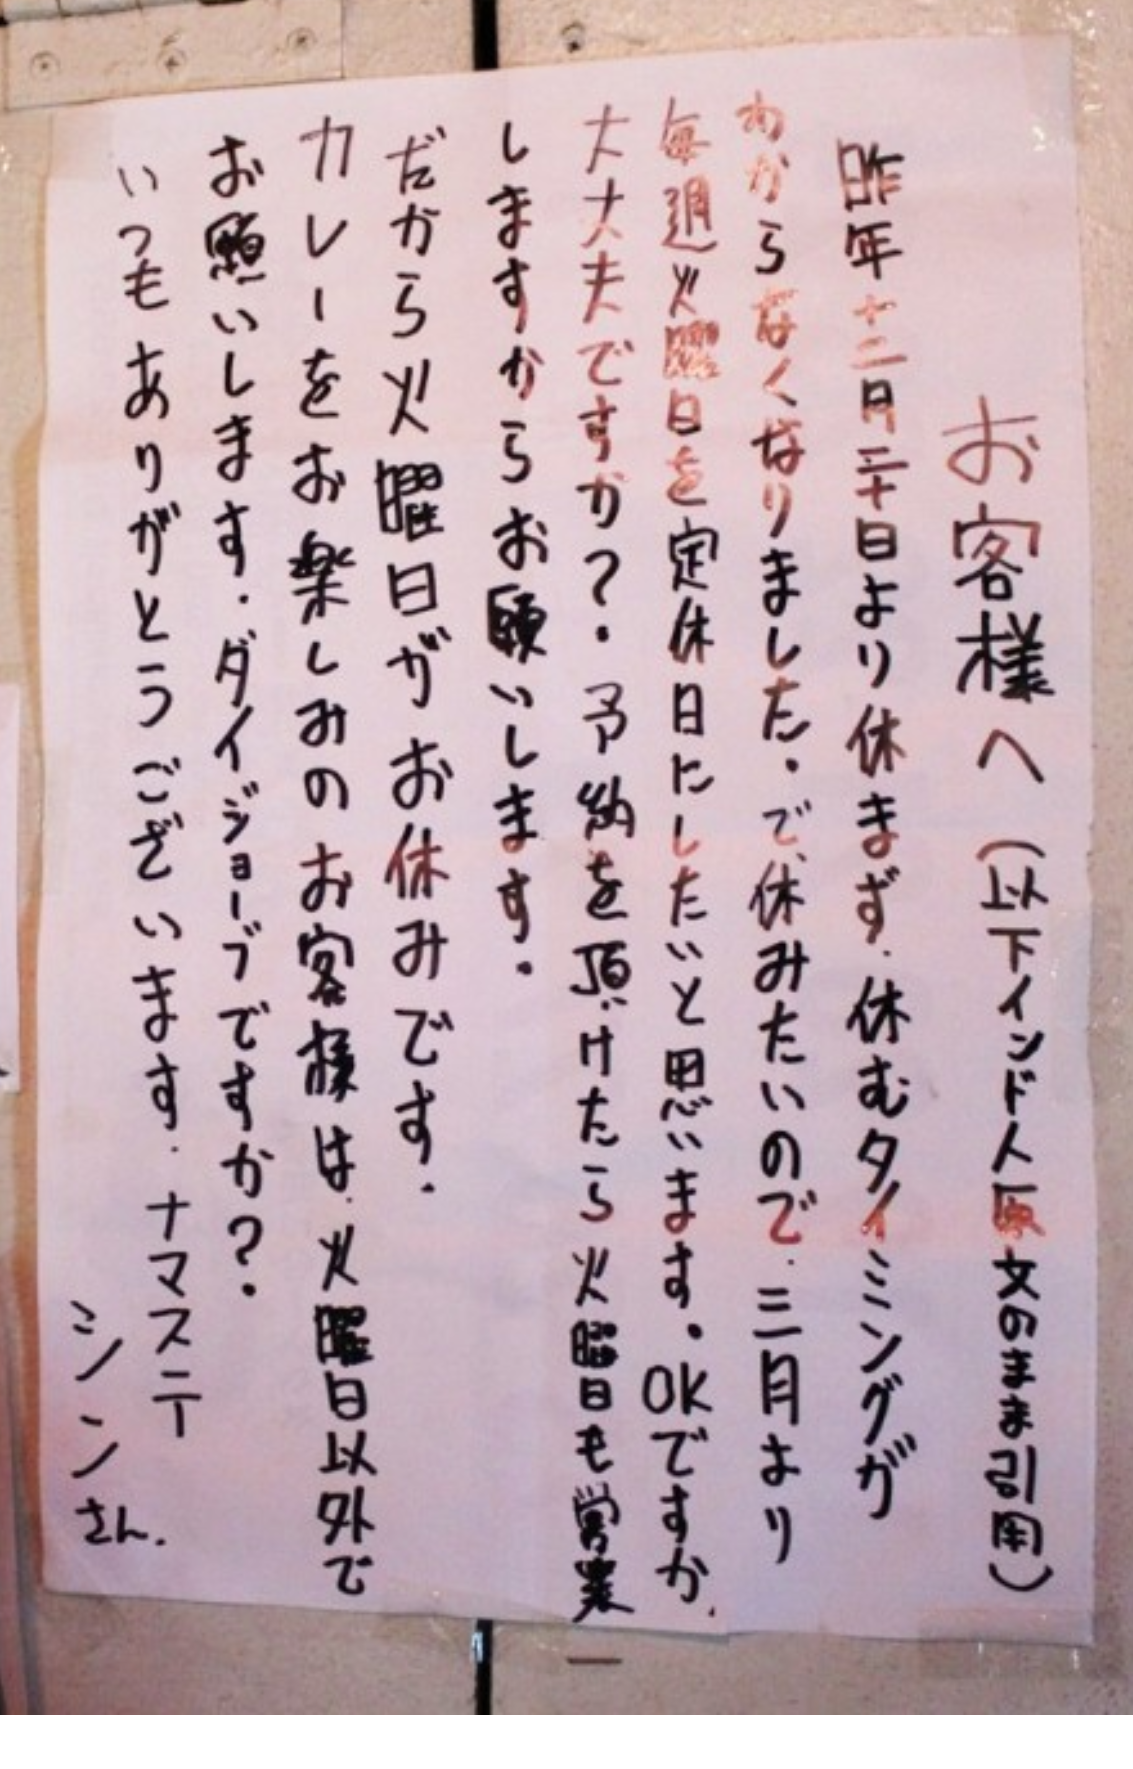 お客様へ（以下インド人原文のまま引用）
昨年十二月三十日より休まず、休むタイミングが
わからなくなりました。で、休みたいので、三月より
毎週火曜日を定休日にしたいと思います。OKですか、
大丈夫ですか？。予約を頂けたら火曜日も営業
しますからお願いします。
だから火曜日がお休みです。
カレーをお楽しみのお客様は、火曜日以外で
お願いします。ダイジョーブですか？。
いつもありがとうございます。ナマステ
シンさん.